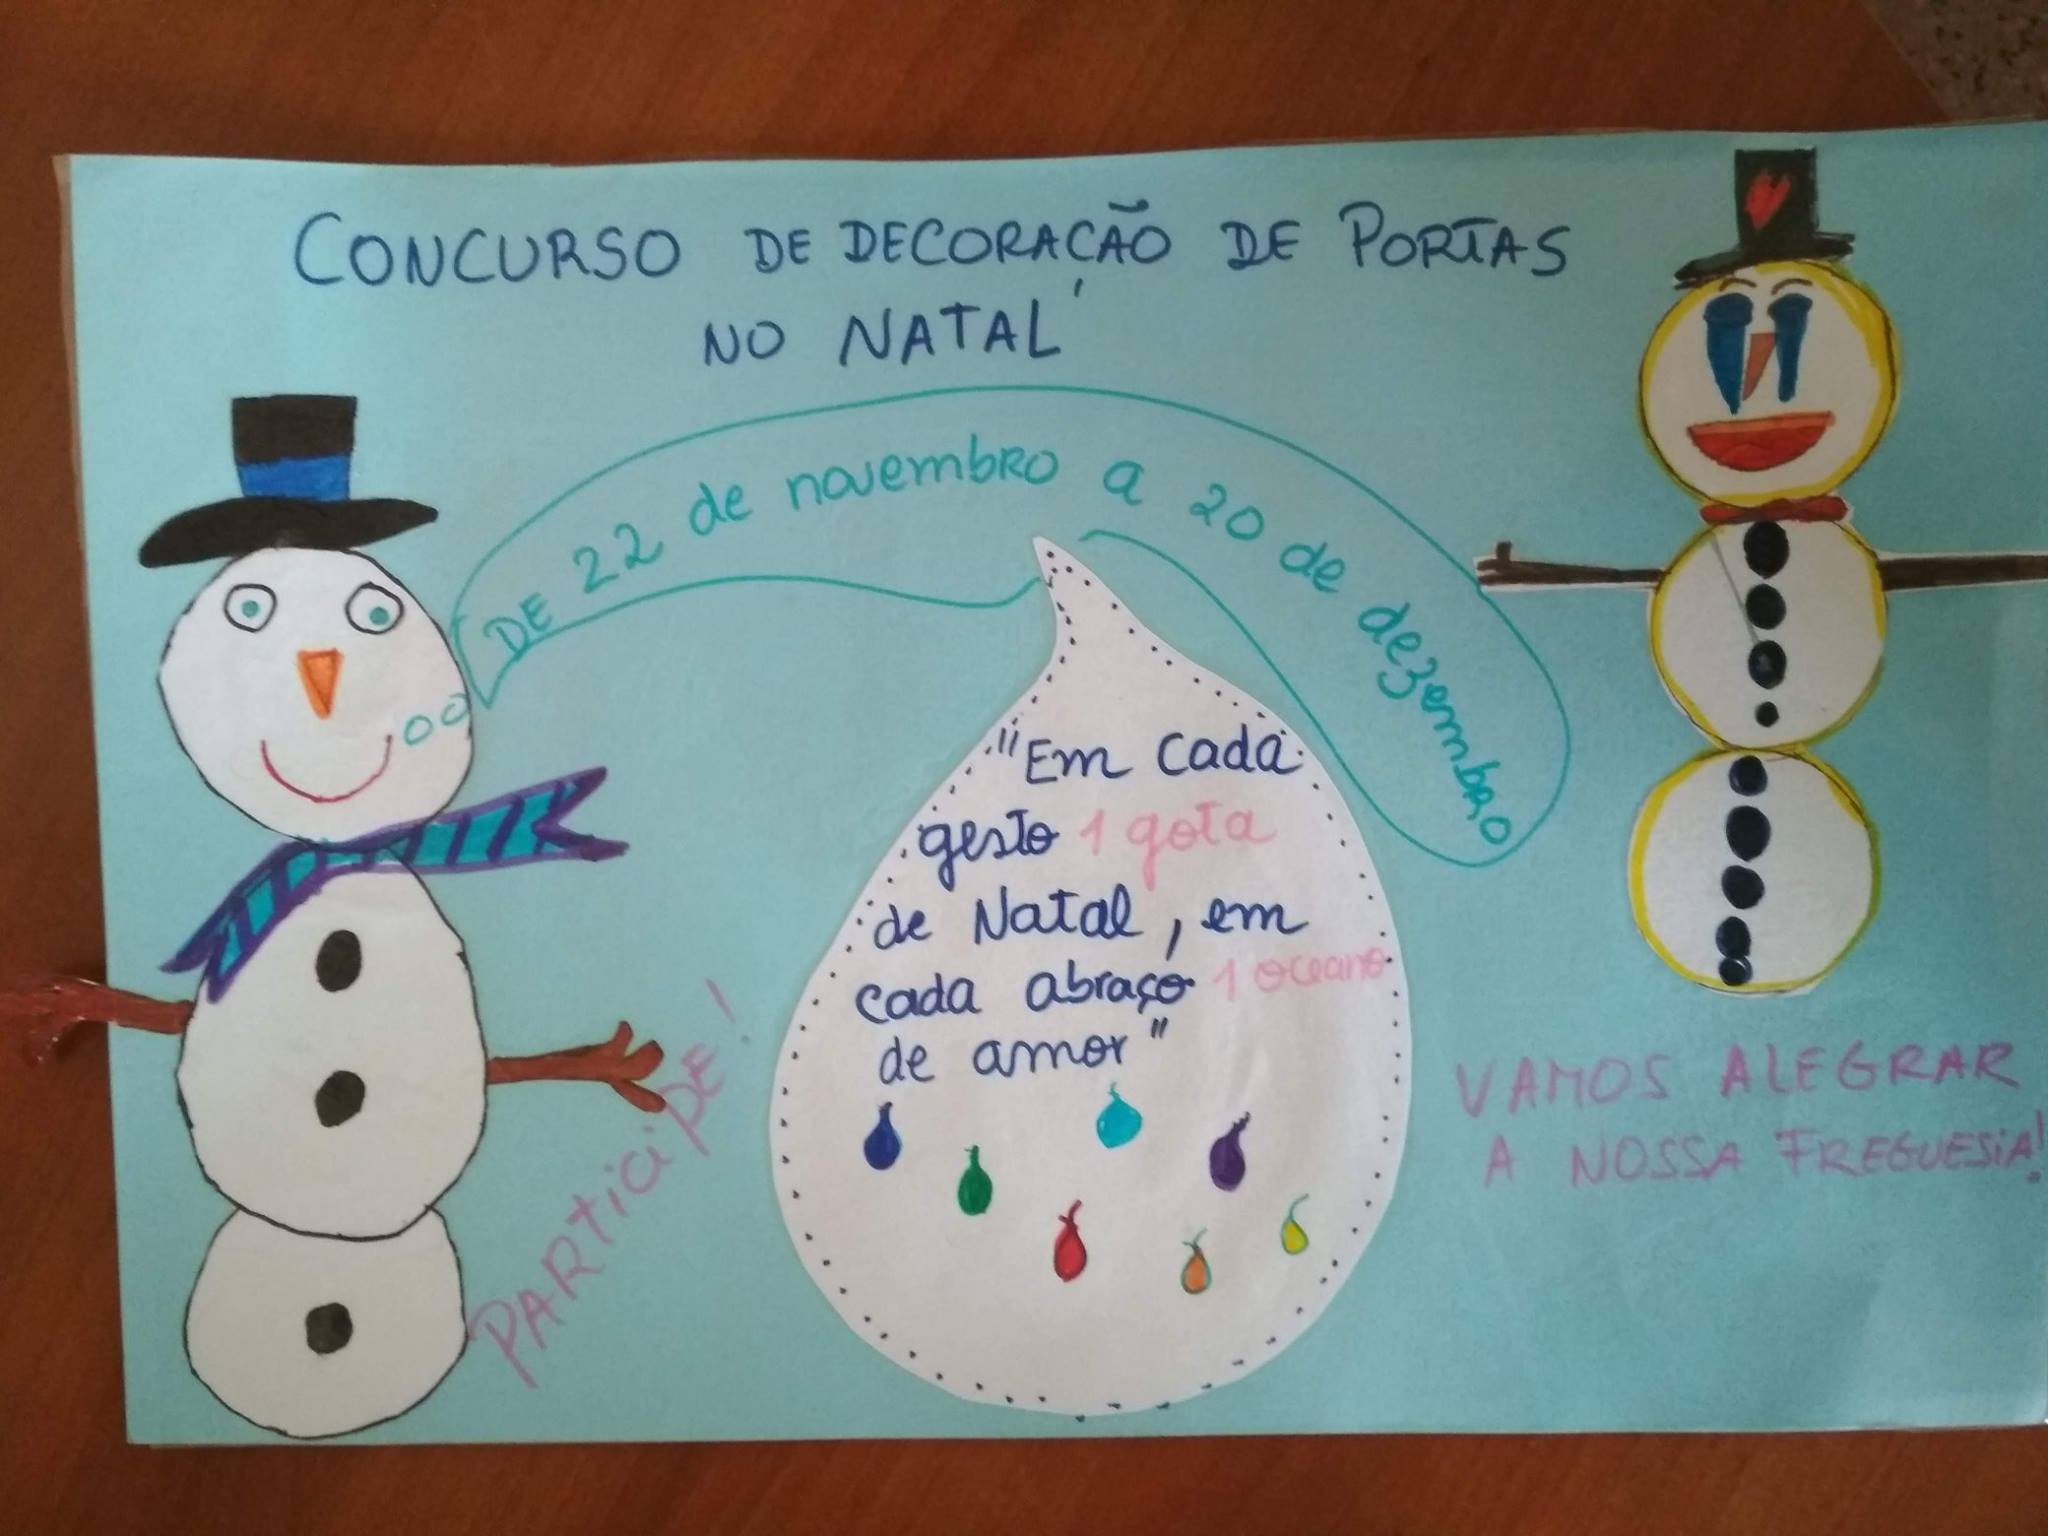 CONCURSO DE DECORAÇÃO DE PORTAS
NO NATAL
DE 22 de novembro a 20 de dezembro
"Em cada
gesto 1 gota
de Natal, em
cada abraço 1 oceano
de amor"
PARTICIPE!
VAMOS ALEGRAR
A NOSSA FREGUESIA!